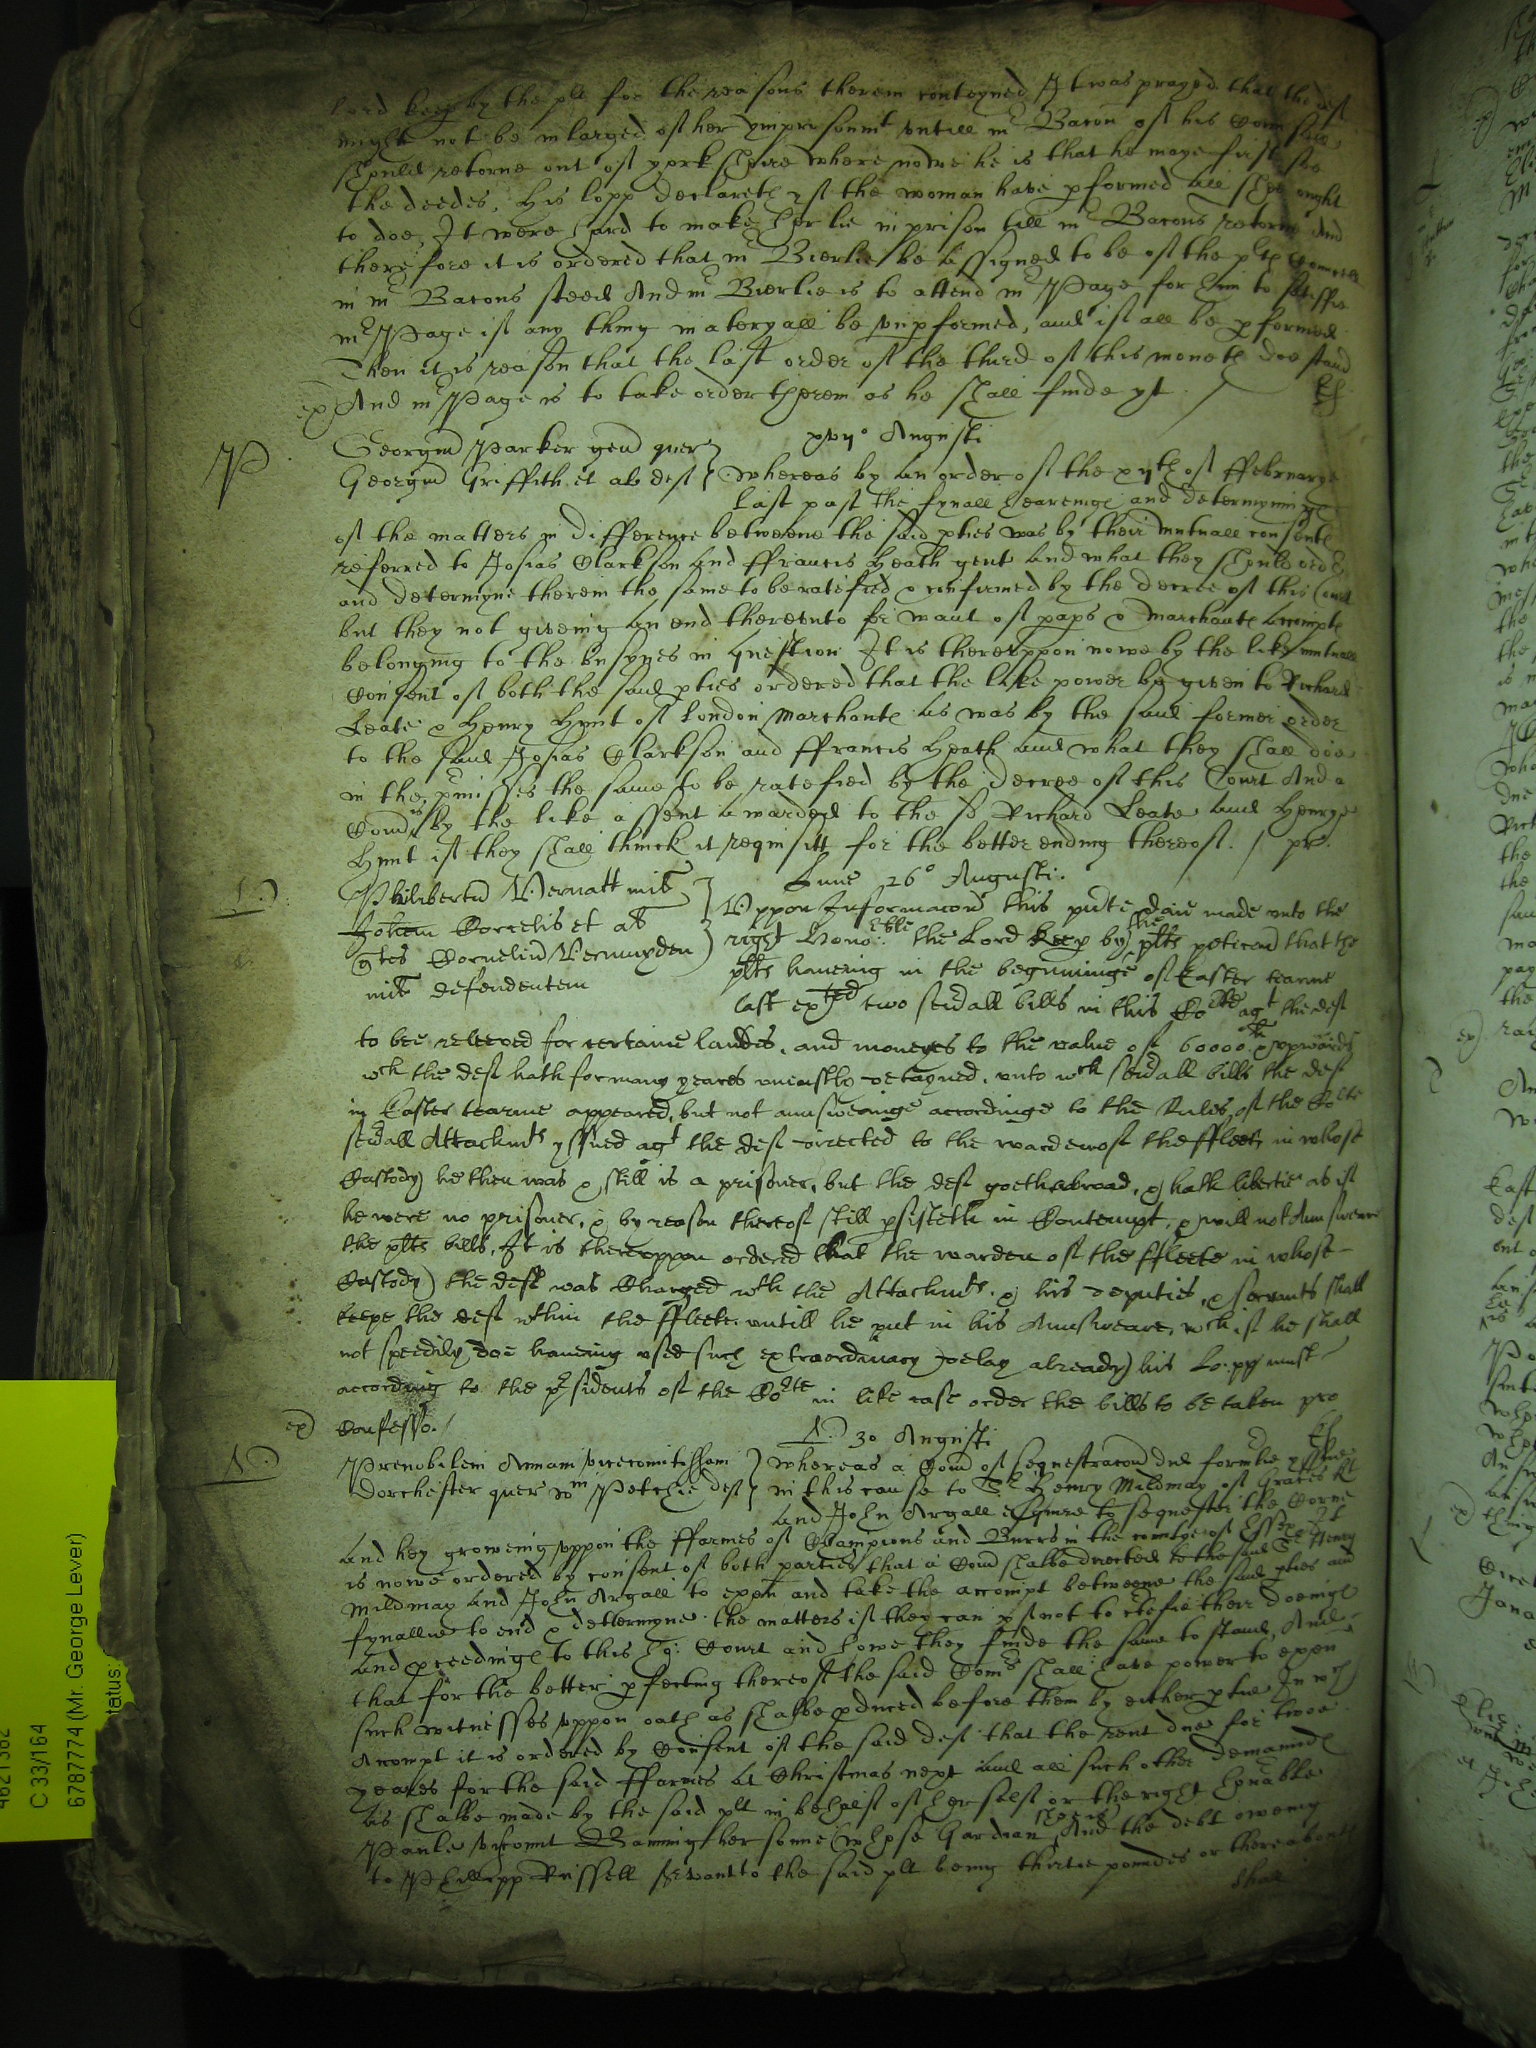 lord keep by the plt for the reasons therein conteyned It was prayed that the deft
might not be inlarged of her imprisonmt untill mr Bacon of his Counsell
should retorne out of yorkshire where nowe he is that he maye first see
the deedes, his lopp declareth yf the woman have pformed all shee ought
to doe, It were hard to make her lie in prison till mr Bacons retorne And
therefore it is ordered that mr Bierlie be assigned to be of the plts Councell
in mr Bacons steed And mr Bierlie is to attend mr Page for him to satisfie
mr Page if any thing materyall be unpformed, and if all be pformed
Then it is reason that the last order of the third of this moneth doe stand
ex) And mr Page is to take order therein as he shall finde yt
P
xvijo Augusti
Georgius Parker gen quer
Georgius Griffith et al deft Whereas by an order of the xijth of ffebruarye
last past the fynall heareinge and determyninge
of the matters in difference betweene the said pties was by their mutuall consente
referred to Josias Clarkson and ffrancis Heath gent and what they should order
and determyne therein the same to be ratefied & confirmed by the decree of this Court
but they not giveing an end thereunto for want of paps & marchante accompte
belonging to the busynes in question It is thereuppon nowe by the like mutuall
consent of both the said pties ordered that the like power be given to Richard
Leate & Henry Hunt of London marchante as was by the said former order
to the said Josias Clarkson and ffrancis Heath and what they shall doe
in the pmisses the same to be ratefied by the decree of this Court And a
Comn is by the like assent awarded to the sd Richard Leate and Henrye
Hunt if they shall thinck it requisitt for the better ending thereof. / pr.
Lune 26o Augusti.
Philibertus Vernatt mil
Johem Corcelis et al
qtes Cornelius Vermuyden
mil defendentem
Uppon Informacon this psente daie made unto the
right honoble the Lord keep by the plts peticon that the
plts haveing in the beginninge of Easter tearme
last exted two sevall bills in this Corte agt the deft
to bee releeved for certaine landes, and moneyes to the value of 60000 li & upwards
wch the deft hath for many yeares uniustly detayned, unto wch sevall bills the deft
in Easter tearme appeared, but not aunsweringe accordinge to the Rules of the Corte
sevall Attachmts yssued agt the deft directed to the warden of the ffleete in whose
Custody he then was & still is a prisoner, but the deft goeth abroad, & hath libertie as if
he were no prisoner, & by reason thereof still psisteth in Contempt, & will not Aunsweare
the plts bills, It is thereuppon ordered that the warden of the ffleete in whose
Custody the deft was Charged wth the Attachmts, & his deputies, & servants shall
keepe the deft wthin the ffleete untill he put in his Aunsweare, wch if he shall
not speedily doe haueing used such extraordinary delay already his Lo:pp must
according to the psidents of the Corte in like case order the bills to be taken pro
ex) Confesso. /
30 Augusti
Prenobilem Annam vicecomitissam
Dorchester quer Wm Petchie deft
whereas a Comn of sequestracon did formlie yssue
in this cause to Sr Henry Mildmay of Graces kt
and John Argall esquire to sequester the Corne
and hey groweing uppon the ffarmes of Champions and Burrs in the countye of Essex It
is nowe ordered by consent of both parties that a Comn shalbe directed to the said Sr Henry
Mildmay and John Argall to exem and take the accompt betweene the said pties and
fynallie to end & determyne the matters if they can yf not to ctefie their doeinge
and pceedinge to this ho: Court and howe they finde the same to stand, And
that for the better pfecting thereof the said Comrs shall have power to exem
such witnesses uppon oath as shalbe pduced before them by either ptie In wch
Accompt it is ordered by Consent of the said deft that the rent due for twoe
yeares for the said ffarmes at Christmas next and all such other demaunde
as shalbe made by the said plt in behalf of her self or the right honable
Paule viscount Banning her sonne (whose Gardian shee is) And the debt oweing
to Phillipp Russell servant to the said plt being thirtie poundes or thereabouts
shall
C 33/164
6787774 (Mr. George Lever)